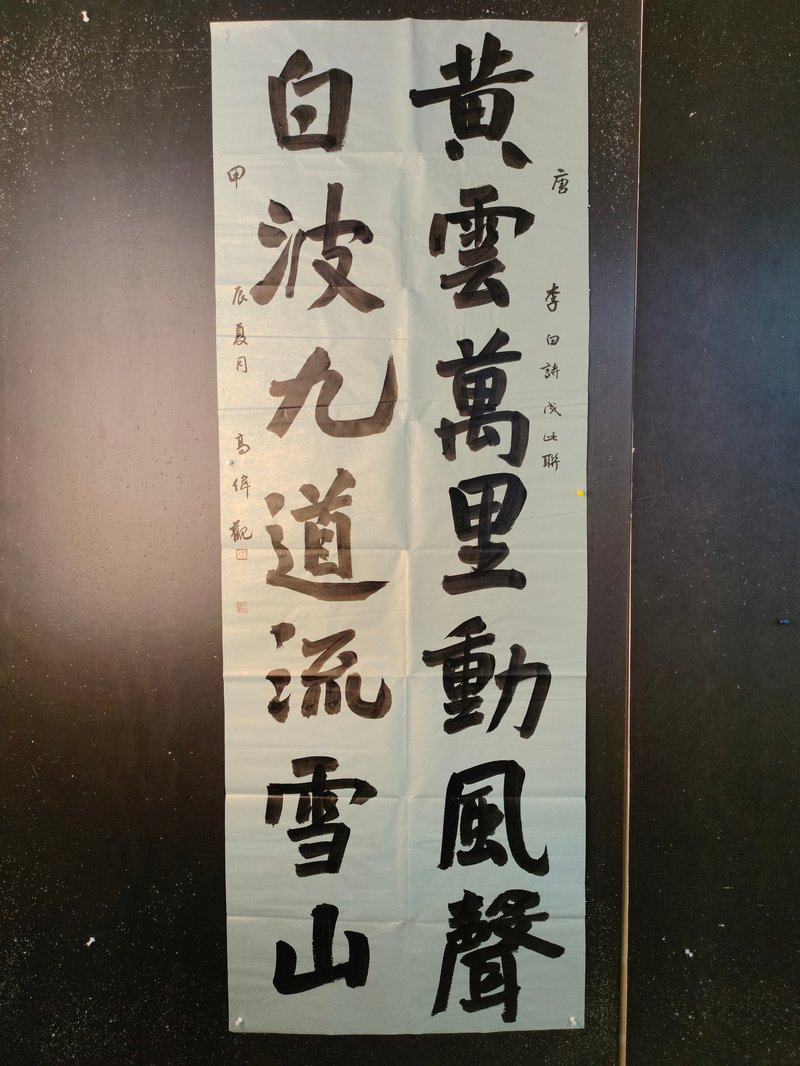 唐李白詩成此聯
黄雲萬里動風聲
白波九道流雪山
甲辰夏月高偉觀